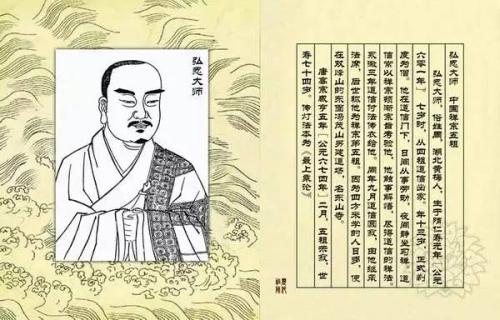 弘忍大师
弘忍大师　中国禅宗五祖
弘忍大师，俗姓周，湖北黄梅人，生于隋仁寿元年〔公元
六零一年〕。七岁时，从四祖道信出家，年十三岁，正式剃
度为僧。他在道信门下，日间从事劳动，夜间静坐习禅。道
信常以禅宗顿渐宗旨考验他，他触事解悟，尽得道信的禅法。
永徽三年道信付法传衣给他。同年九月道信圆寂，由他继承
法席，后世称他为禅宗第五祖。因为四方来学的人日多，便
在双峰山的东面冯茂山另建道场，名东山寺。
唐高宗咸亨五年〔公元六七四年〕二月，五祖宗寂，世
寿七十四岁。传灯法本为《最上乘论》